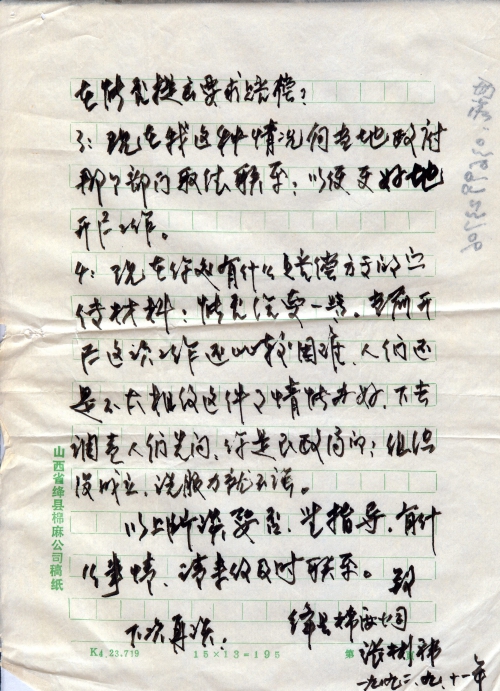 在情况提出要求赔偿?
3:现在我这种情况向当地政府
那个部门取法联系;以便更好地
开展工作。
4:现在你处有什么赔偿方面的宣
传材料;情况给要一些。当前开
展这次工作还比较困难,人们还
是不大相信这件事情能办好,下去
调查人们先问,你是民政局的;组织
没成立,说服力就不强。
以上所谈妥否,望指导,有什
么事情,请来信及时联系。 致
下次再谈。
绛县棉麻公司
一九九二.九.十一年
山西省绛县棉麻公司稿纸
K4.23.719 15×13=195 第